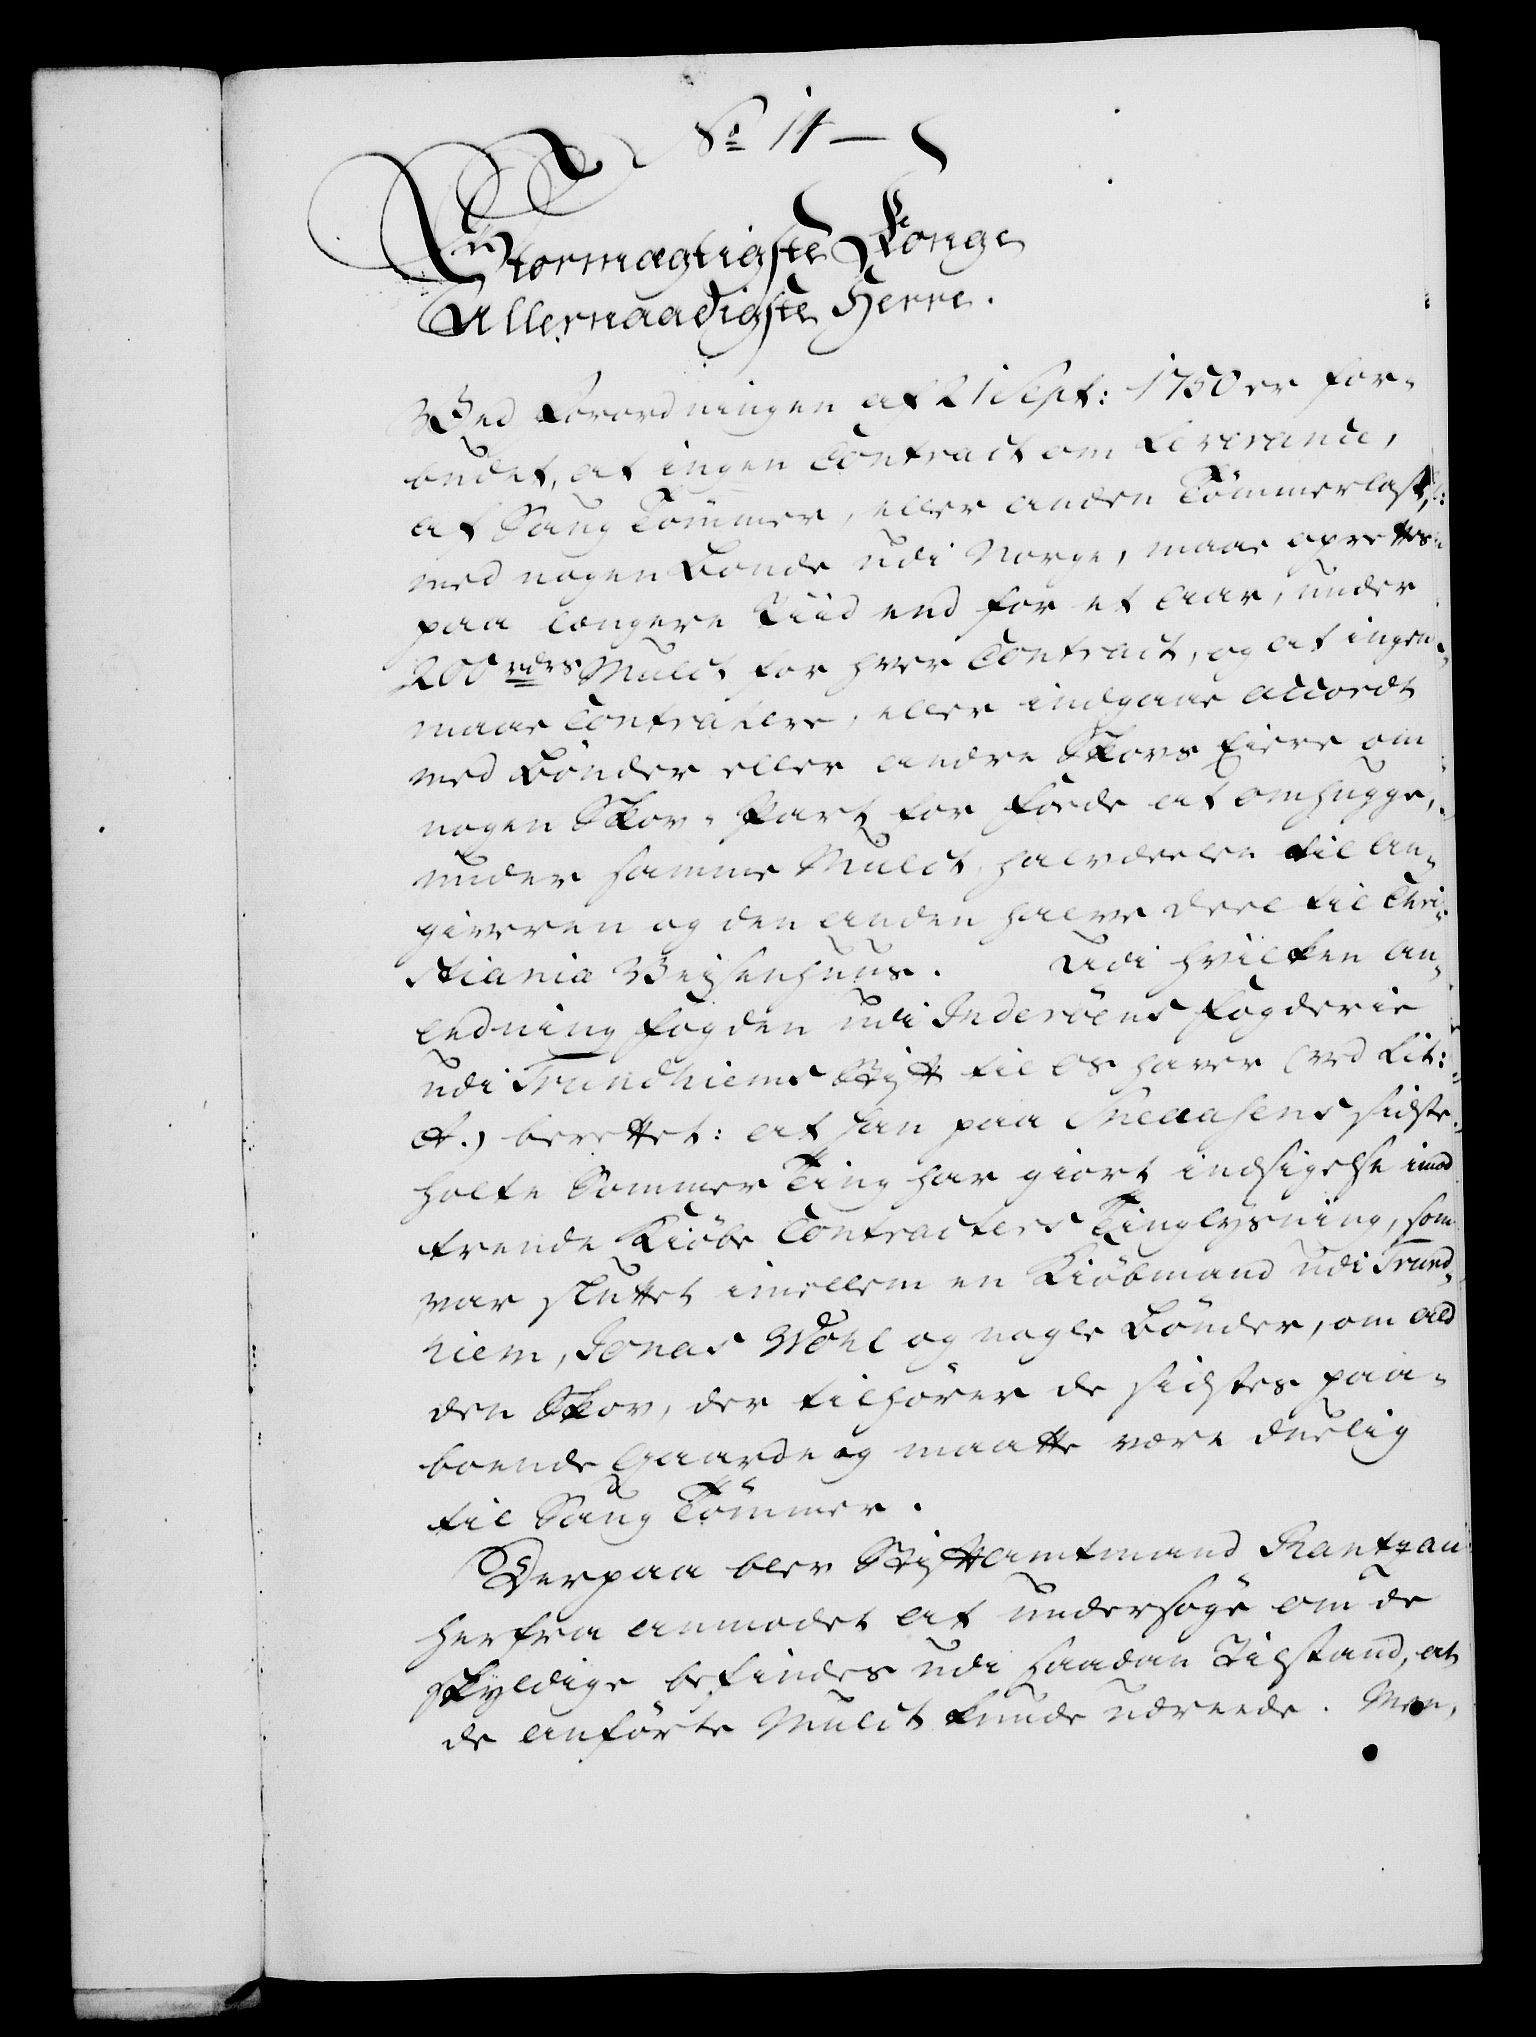 No 14
Stormægtigste Konge
Allernaadigste Herre.
Ved Forordningen af 21 Sept: 1750 er for-
budet, at ingen Contract om Leverance,
af Saug Tømmer, eller anden Tømmerlast,
med nogen Bonde udi Norge, maae oprettes
paa længere Tiid end for et Aar, under
200 rdrs Mulct for hver Contract, og at ingen
maae Contrahere, eller indgaae Accordt
med Bønder eller andre Skovs Eiere om
nogen Skov-Part for Fode at omhugge,
under samme Mulct, halvdeelen til An-
giveren og den anden halve Deel til Chri-
stiania Veisenhuus. Udi hvilken An-
ledning Fogden udi Inderöens Fogderie
udi Trundhiems Stift til os haver (ved Lit:
A.) berettet: at han paa Sneaasens sidst-
holte Sommer Ting har giort indsigelse imod
trende Kiöbe Contracters Tinglysning, som
var sluttet imellem en Kiöbmand udi Trund-
hiem, Jonas Wohl og nogle Bønder, om ald
den Skov, der tilhører de sidstes paa-
boende Gaarde og maatte være duelig
til Saug Tømmer.
Derpaa blev Stiftamtmand Rantzau
herfra anmodet at undersøge om de
skyldige befindes udi saadan Tilstand, at
de anførte Mulct kunde udreede. Men,